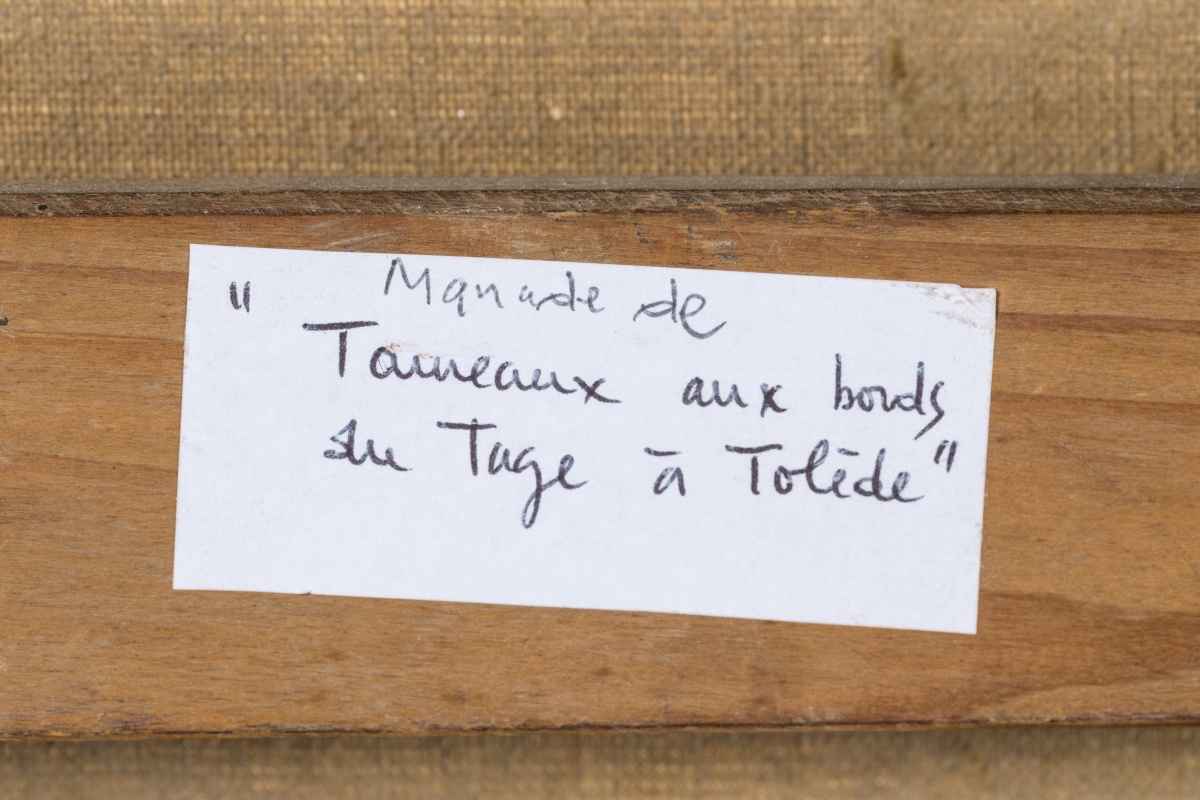 Manade de
" Taureaux aux bords
du Tage à Tolède"